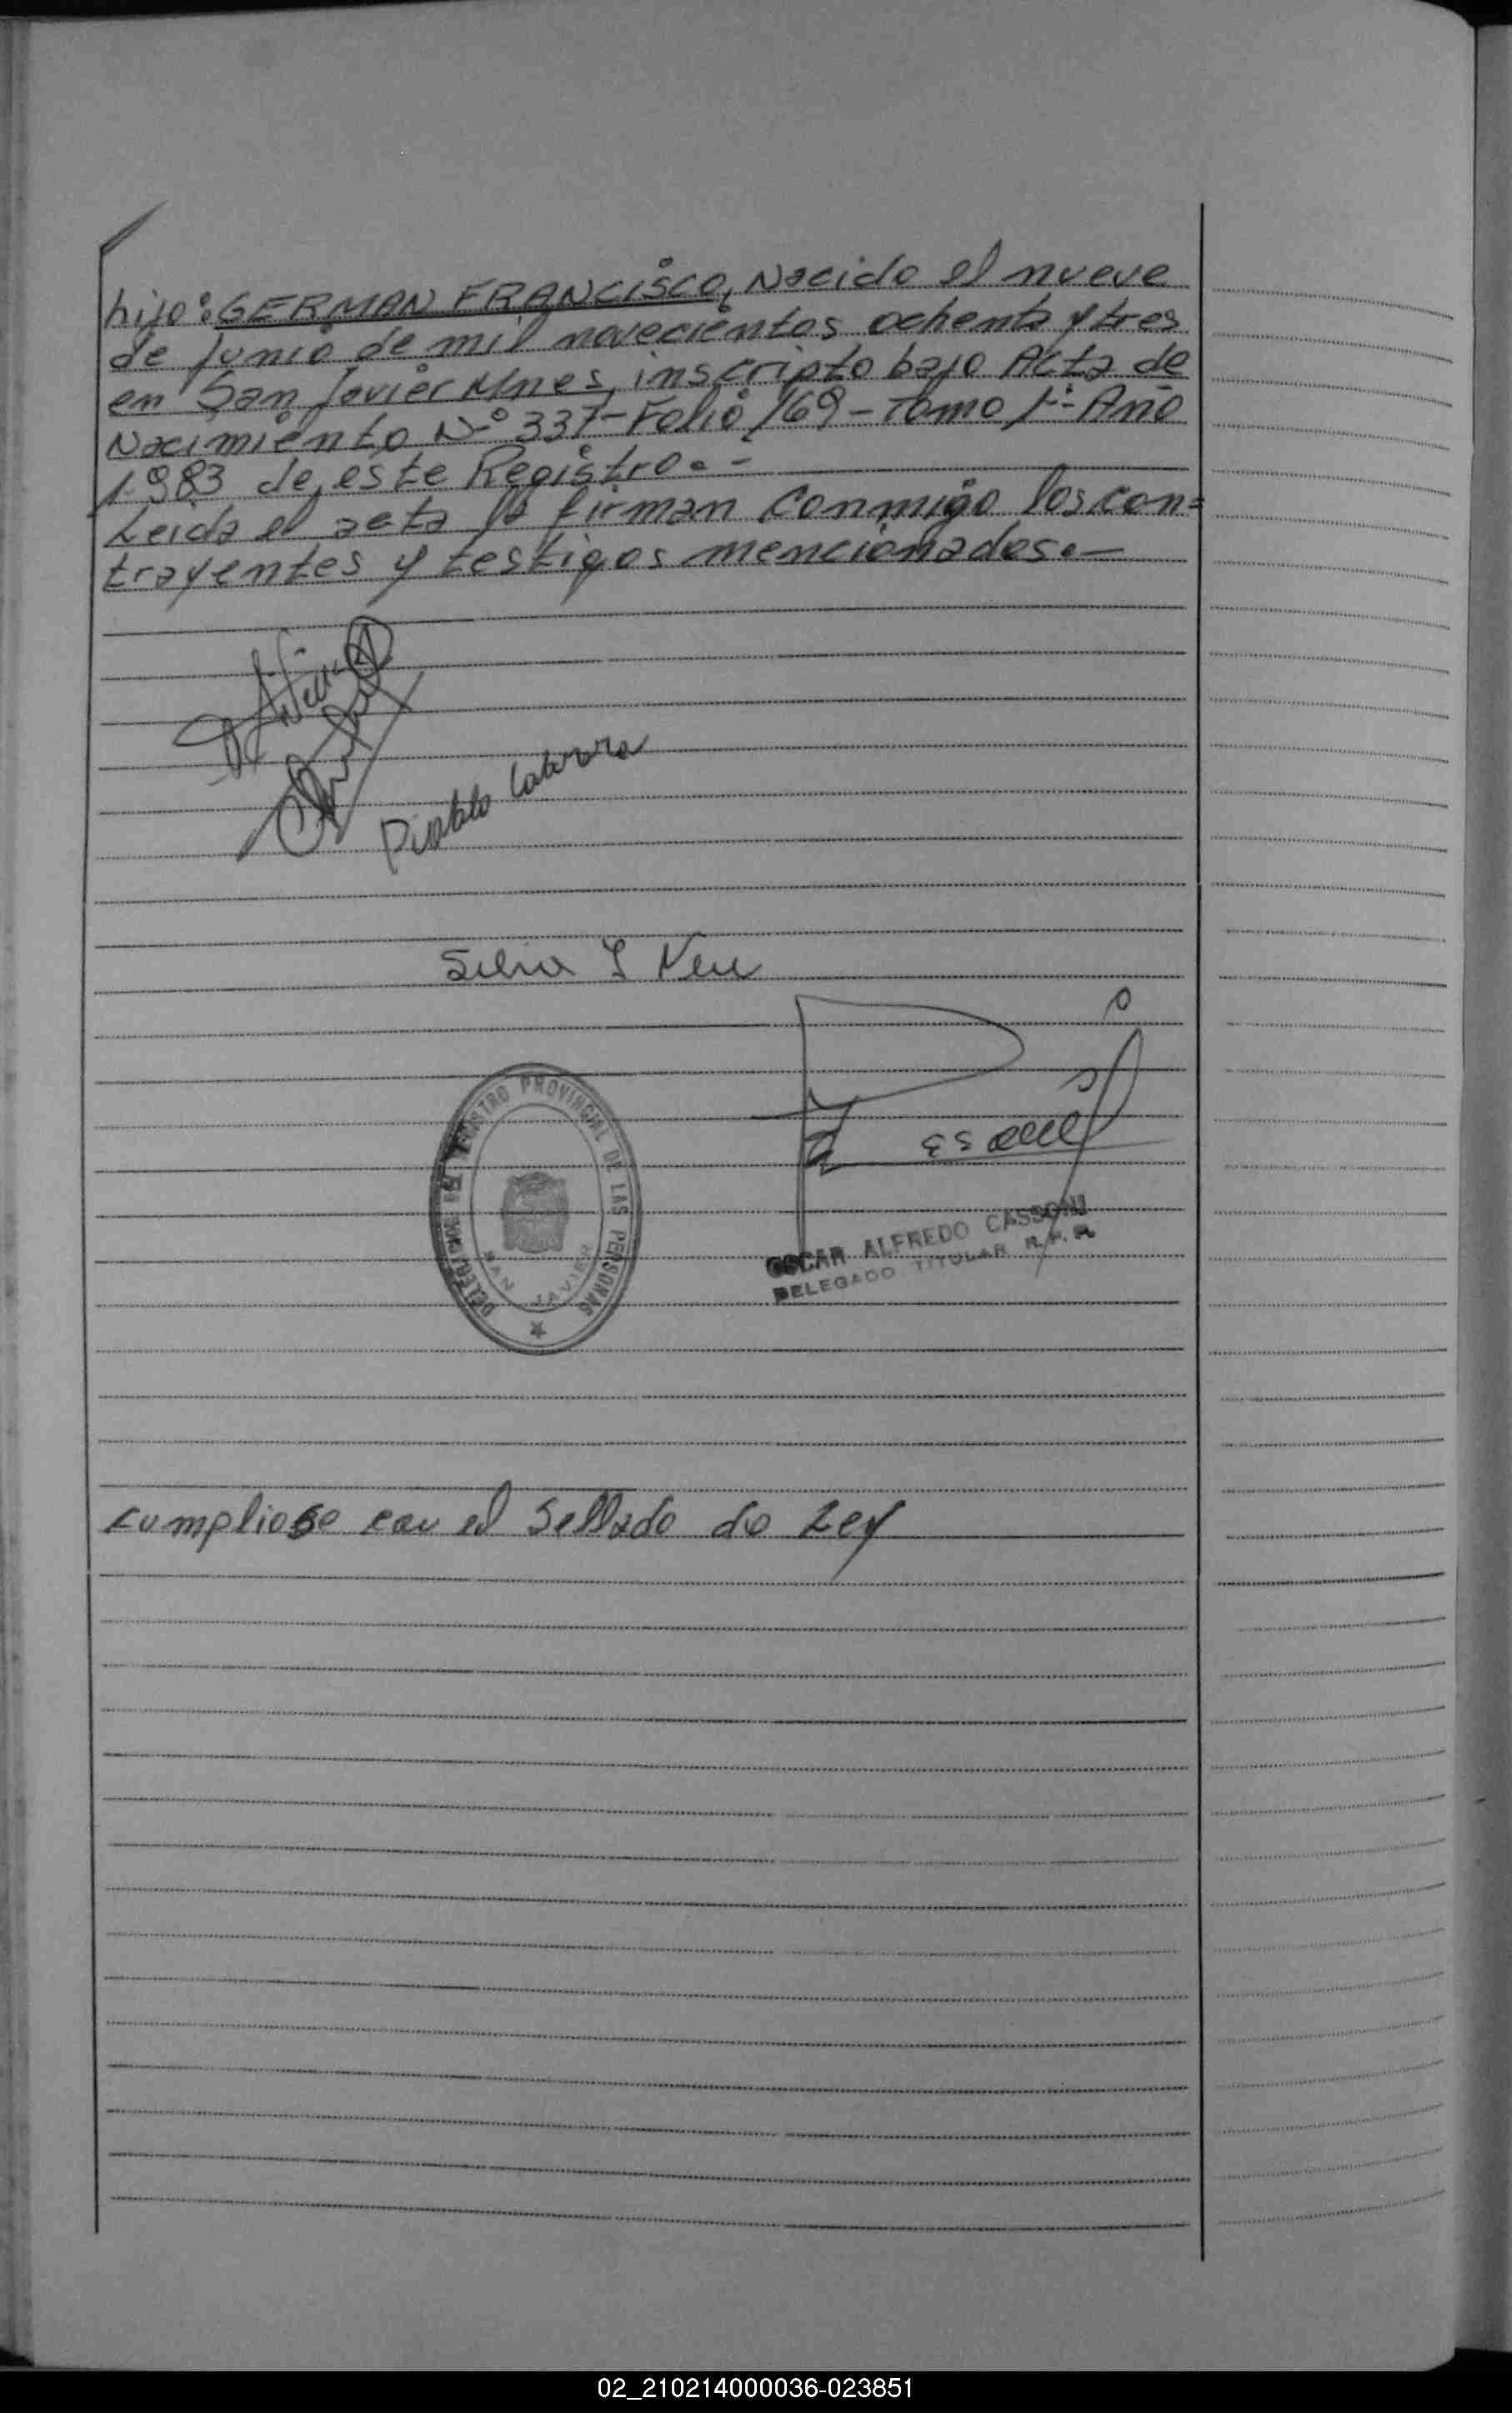 hijo: GERMAN FRANCISCO, Nacido el nueve
de Junio de mil novecientos ochenta y tres
en San Javier Mnes, inscripto bajo Acta de
Nacimiento Nº 337- Folio 169 - Tomo 1º- Año
1.983 de este Registro.-
Leida el acta la firman conmigo los con=
trayentes y testigos mencionados.-
Pablo Cabrera
Silvia Neu
REGISTRO PROVINCIAL DE LAS PERSONAS
SAN JAVIER
OSCAR ALFREDO CASSONI
DELEGADO TITULAR R.P.P.
cumpliose con el Sellado de Ley
02_210214000036-023851